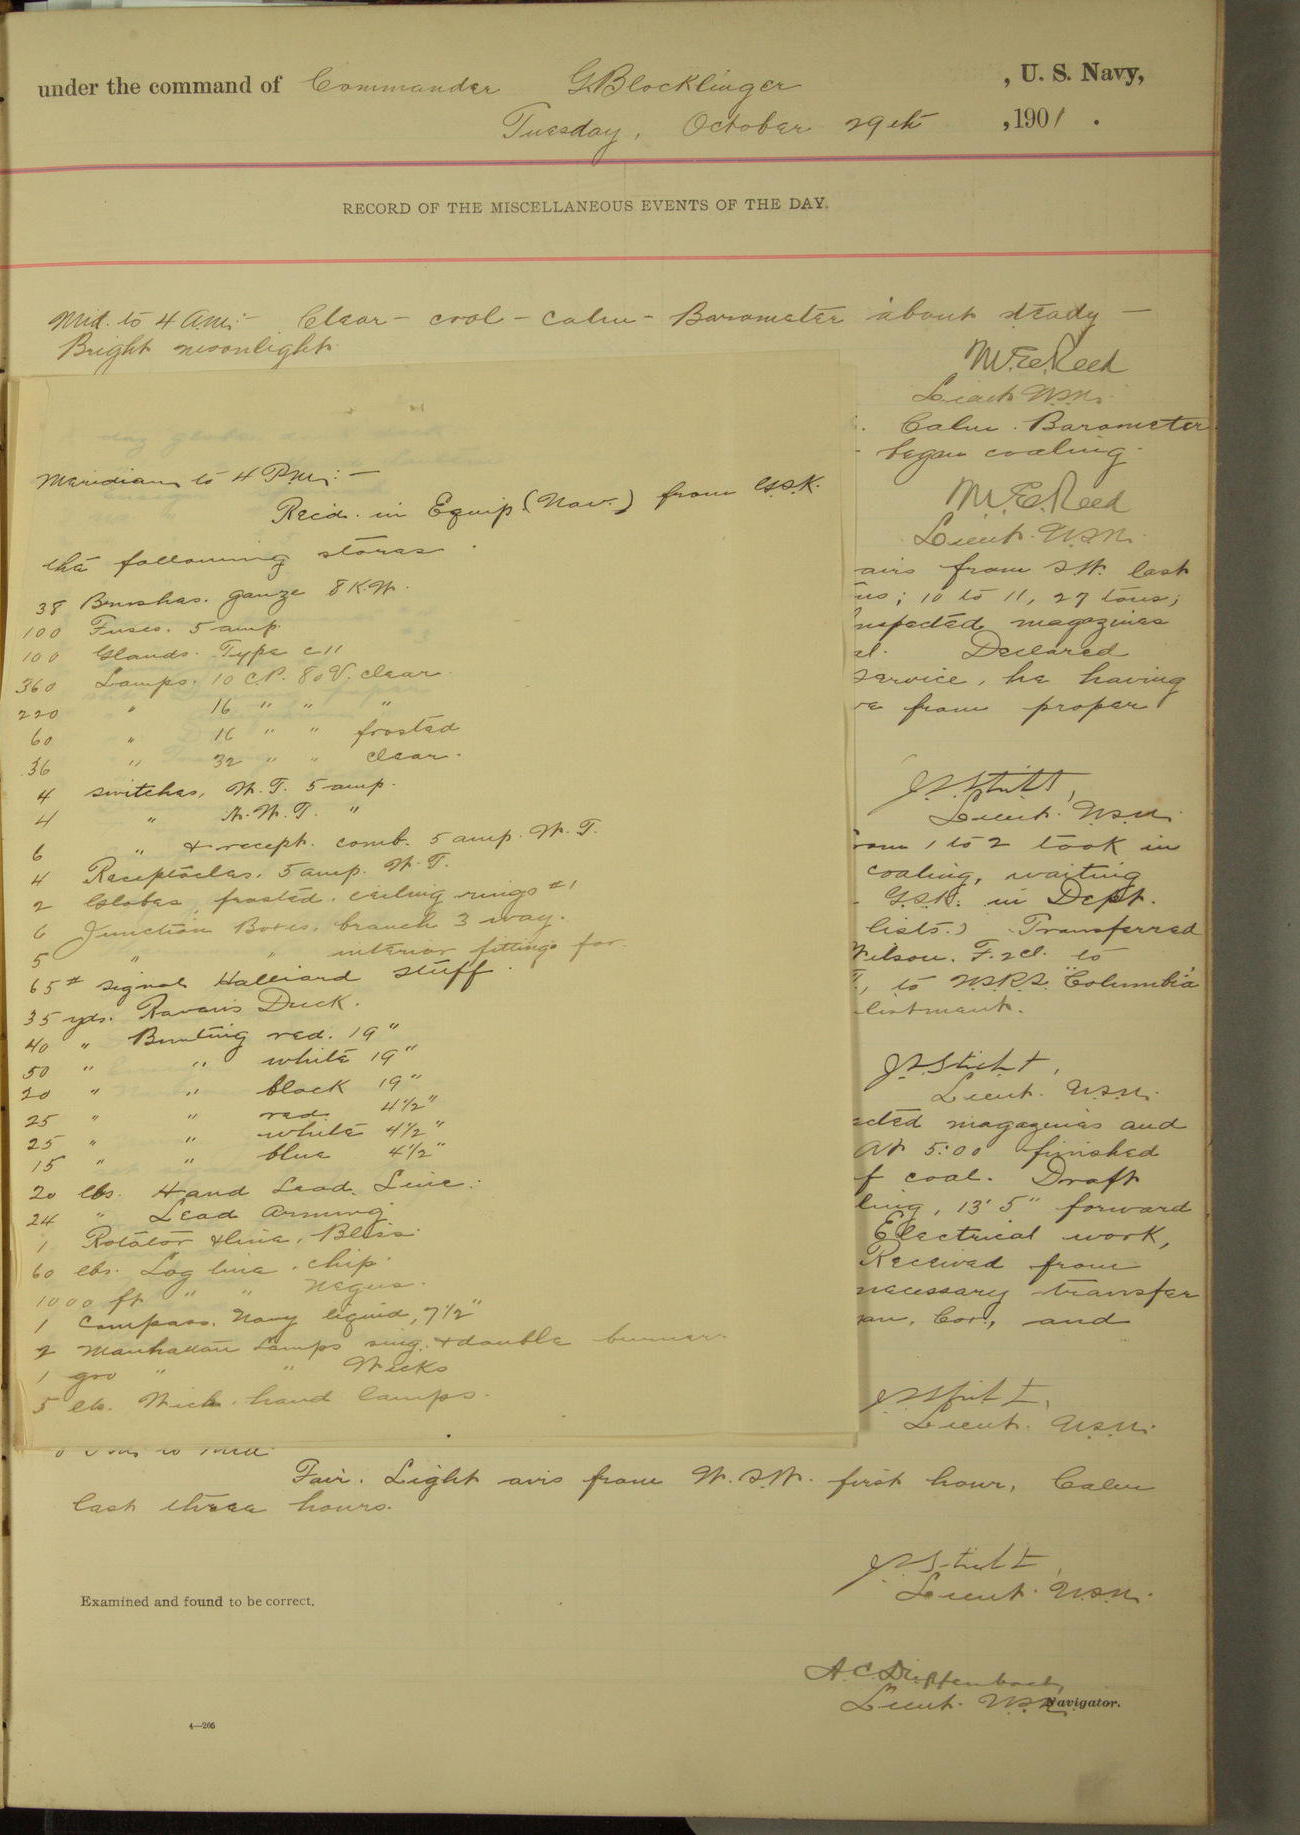 under the command of Commander G Blocklinger , U. S. Navy,
Tuesday, October 29th , 1901 .
RECORD OF THE MISCELLANEOUS EVENTS OF THE DAY.
Mid. to 4 A.M.:- Clear - cool - calm - Barometer about steady -
Bright moonlight.
M.E. Reed
Lieut. U.S.N.
Calm. Barometer
began coaling.
M.E. Reed
Lieut. U.S.N.
airs from S.W. last
ns; 10 to 11, 27 tons;
nspected magazines
el. Declared
service, he having
re from proper
Lieut. U.S.N.
rom 1 to 2 took in
coaling, waiting
G.S.K. in Dept.
lists.) Transferred
Wilson, F. 2cl. to
T., to U.S.R.S. "Columbia"
listment.
Lieut. U.S.N.
cted magazines and
At 5:00 finished
f coal. Draft
ling, 13' 5" forward
Electrical work,
Received from
necessary transfer
an, Cox, and
Lieut. U.S.N.
Meridian to 4 P.M.:-
Recd. in Equip (Nav.) from G.S.K.
the following stores.
38 Brushes. gauze 8 K.W.
100 Fuses. 5 amp.
100 Glands. Type C 11
360 Lamps. 10 C.P. 80 V. clear.
220 " 16 " " "
60 " 16 " " frosted
36 " 32 " " clear.
4 switches, W.T. 5 amp.
4 " N.W.T. "
6 " & recept. comb. 5 amp. W.T.
4 Receptacles. 5 amp. W.T.
2 Globes, frosted. ceiling rings #1
6 Junction Boxes, branch 3 way.
5 " " interior fittings for
65 # signal Halliard stuff.
35 yds. Ravens Duck.
40 " Bunting red. 19"
50 " " white 19"
20 " " black 19"
25 " " red 4½"
25 " " white 4½"
15 " " blue 4½"
20 lbs. Hand Lead Line.
24 " Lead Arming
1 Rotator & line, Bliss
60 lbs. Log line, chip.
1000 ft " " Negus.
1 Compass. Navy liquid, 7½"
2 Manhattan Lamps sing. & double burner.
1 gro " " Wicks
5 lb. Wick, hand lamps.
Fair. Light airs from W.S.W. first hour, Calm
last three hours.
Lieut. U.S.N.
Examined and found to be correct.
A. C. Dieffenbach
Lieut. U.S.N. Navigator.
4—206